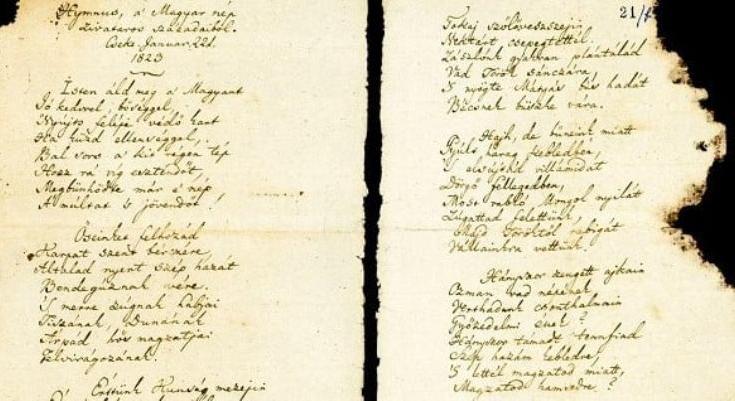 Hymnus, a' Magyar nép
Zivataros századaiból.
Cseke, Januar. 22d.
1823
Isten áld meg a' Magyart
Jó kedvvel, bőséggel,
Nyújts feléje védő kart
Ha küzd ellenséggel,
Bal sors a' kit régen tép
Hozz rá víg esztendőt,
Megbűnhődte már e' nép
A' múltat 's jövendőt!
Őseinket felhozád
Kárpát szent bérczére,
Általad nyert szép hazát
Bendegúznak vére.
'S merre zúgnak habjai
Tiszának, Dunának
Árpád hős magzatjai
Felvirágozának.
Értünk Kunság mezején
21/
Tokaj szőlővesszein
Nektárt csepegtettél.
Zászlónk gyakran plántálád
Vad Török sánczára,
'S nyögte Mátyás bús hadát
Bécsnek büszke vára.
Hajh, de bűneink miatt
Gyúlt harag kebledben,
'S elsújtád villámidat
Dörgő fellegedben,
Most rabló Mongol nyilát
Zúgattad felettünk,
Majd Töröktől rabigát
Vállainkra vettünk.
Hányszor zengett ajkain
Ozman vad népének
Vert hadunk csonthalmain
Győzedelmi ének?
Hányszor támadt tennfiad
Szép hazám kebledre,
'S lettél magzatod miatt,
Magzatod hamvedre?